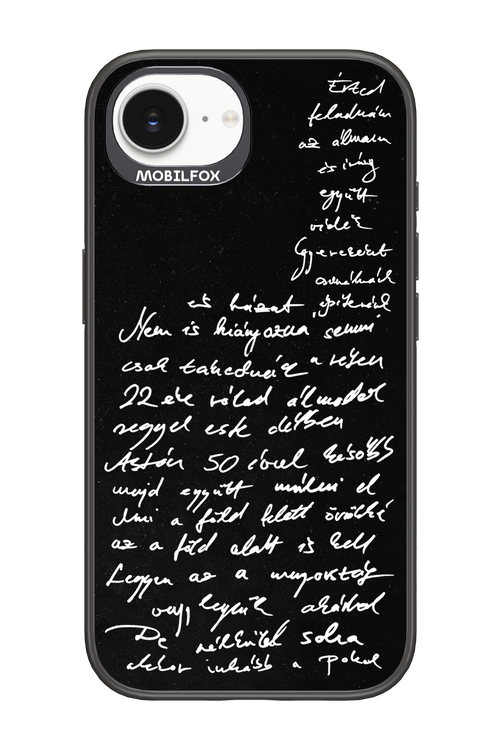 MOBILFOX
Érted
feladnám
az álmaim
és irány
együtt
vidék
Gyerekeket
csinálnánk
és házat építenénk
Nem is hiányozna semmi
csak takednánk a
22 éve rólad álmodok
reggel este délben
Aztán 50 évvel később
majd együtt múlni el
ami a föld felett örökké
az a föld alatt is kell
Legyen az a mennyország
vagy legyünk akárhol
De nélküled soha
akkor inkább a pokol